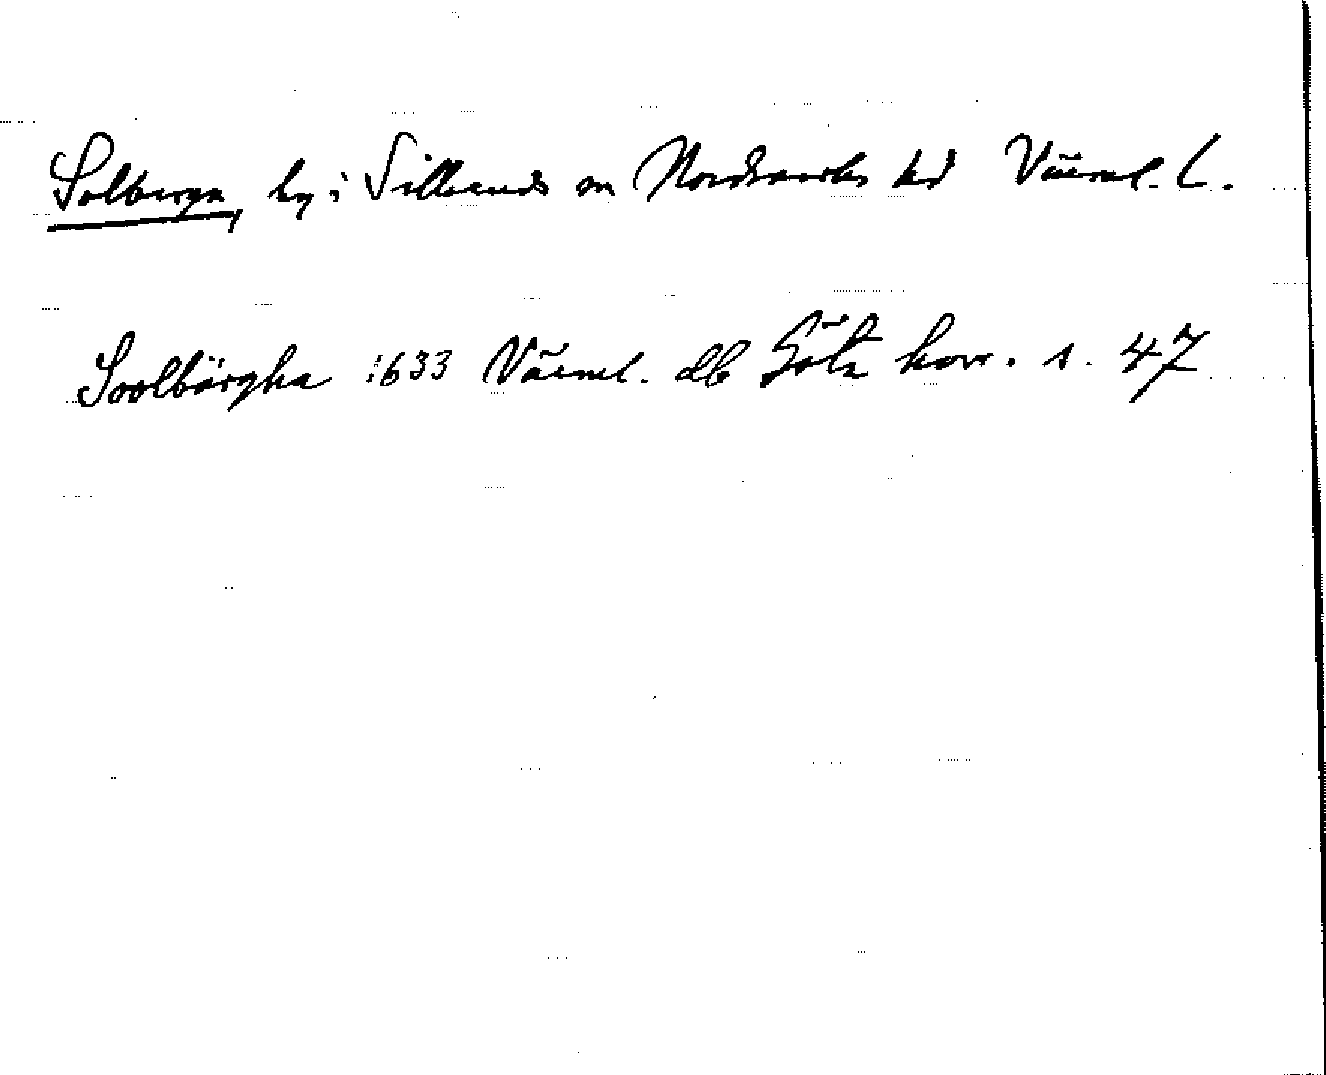 Solberga, by i Silleruds sn Nordmarks hd Värml. l.
Soolbärgha 1633 Värml. db Göta hovr. s. 47